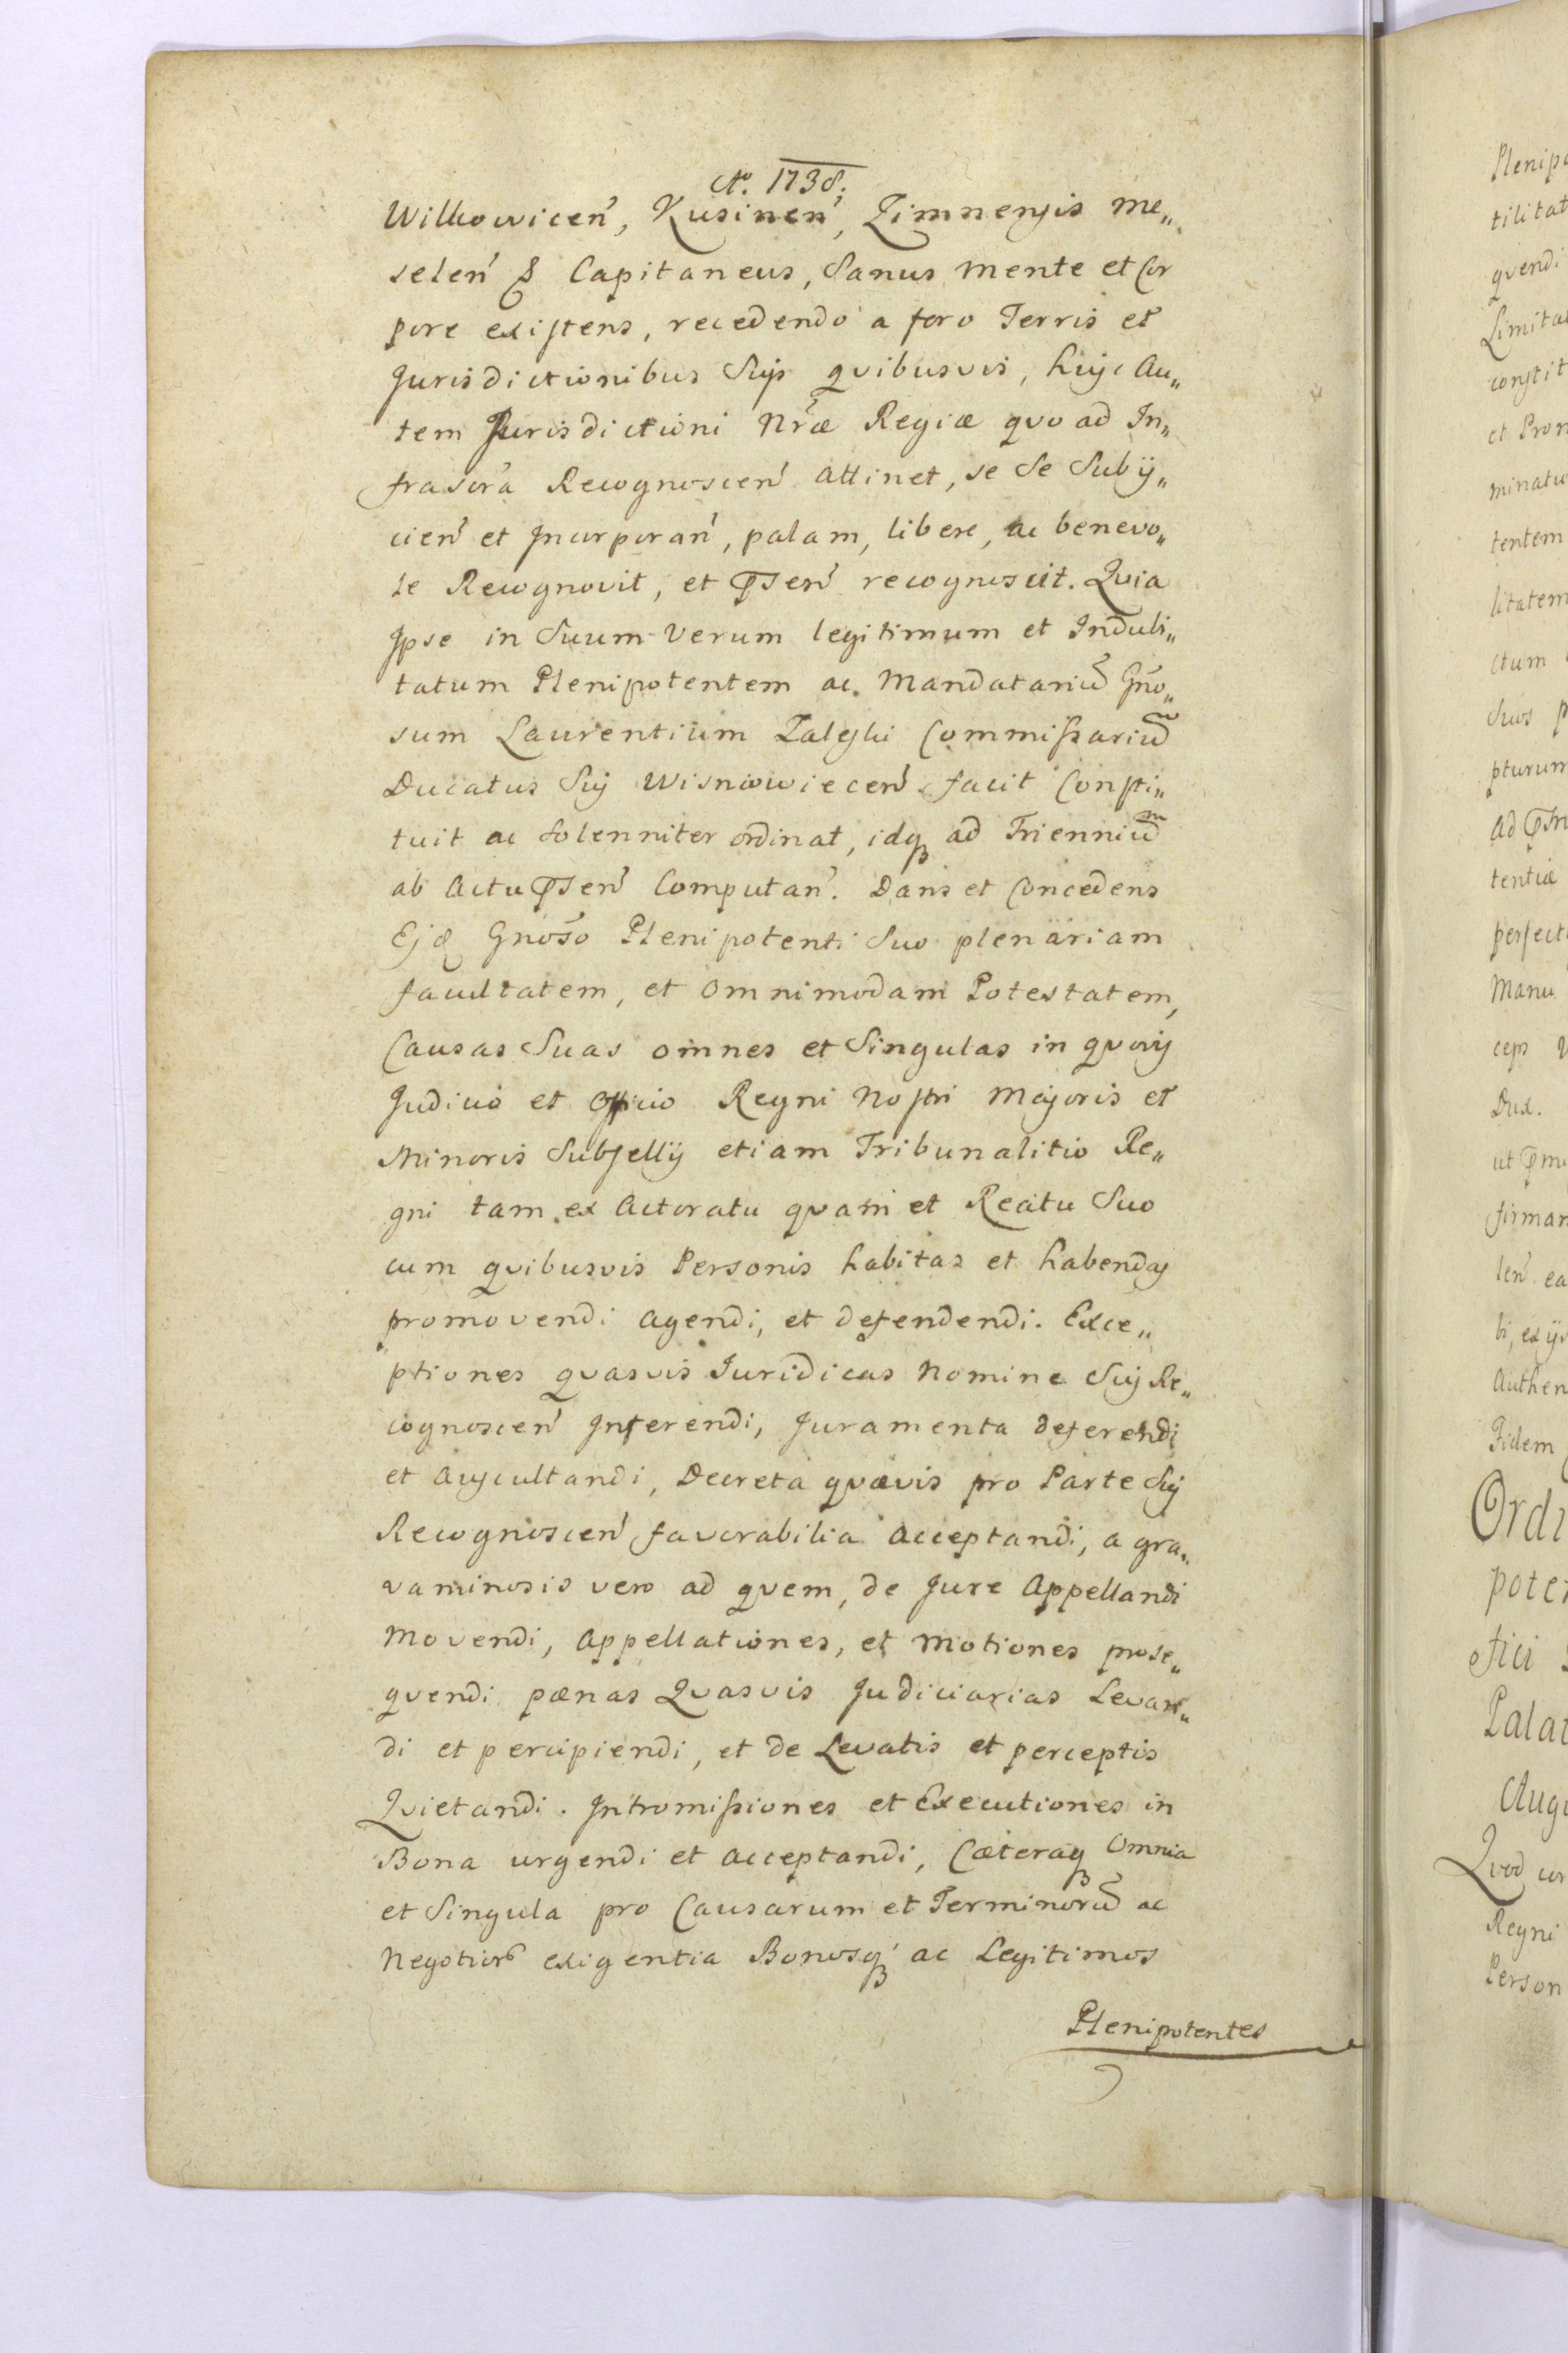 Ao. 1738.
Wilkowicen, Kusinen, Zimnensis Me„
selen & Capitaneus, Sanus mente et Cor
pore existens, recedendo a foro Terris et
Jurisdictionibus Suis quibusvis, huic Au„
tem Jurisdictioni Nræ Regiæ quo ad In„
frascra Recognoscen attinet, se se Subij„
cien et Incorporan, palam, libere, ac benevo„
le Recognovit, et Psen recognoscit. Quia
Ipse in Suum Verum legitimum et Indubi„
tatum Plenipotentem ac Mandatariũ Gño„
sum Laurentium Zaleski Commissariũ
Ducatus Sui Wisniowiecen facit Consti„
tuit ac Solenniter ordinat, idq ad Trienniũ
ab Actu Psen Computan. Dans et Concedens
Ejd Gnoso Plenipotenti Suo plenariam
facultatem, et omnimodam Potestatem,
Causas Suas omnes et Singulas in quovis
Judicio et Officio Regni Nostri Majoris et
Minoris Subsellij etiam Tribunalitio Re„
gni tam ex Actoratu quam et Reatu Suo
cum quibusvis Personis habitas et habendas
promovendi agendi, et defendendi. Exce„
ptiones quasvis Juridicas Nomine Sui Re„
cognoscen Inferendi, Juramenta deferendi
et Auscultandi, Decreta quævis pro Parte Sui
Recognoscen favorabilia acceptandi, a gra„
vaminosis vero ad quem, de Jure Appellandi
Movendi, Appellationes, et Motiones prose„
quendi pænas Quasvis Judiciarias Levan„
di et percipiendi, et de Levatis et perceptis
Quietandi. Intromissiones et Executiones in
Bona urgendi et acceptandi, Cæteraq Omnia
et Singula pro Causarum et Terminorũ ac
Negotior exigentia Bonosq ac Legitimos
Plenipotentes
Plenipo
tilitat
quendi
Limitat
constit
et Prom
minatio
tentem
litatem
ctum
suos p
pturum
ad Psn
tentiæ
perfect
Manu
ceps
Dux.
ut
firman
len ea
Authen
Fidem
Ordi
poten
Palat
Augu
Quod cor
Regni
Person